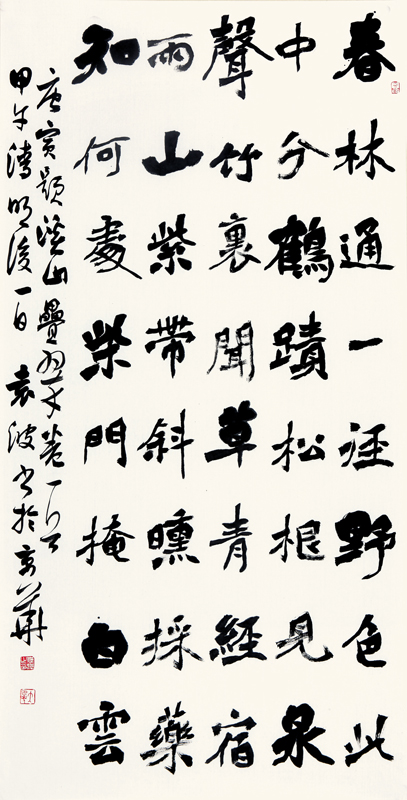 春林通一径野色此
中分鶴蹟松根見泉
聲竹裏聞草青經宿
雨山紫帶斜曛採藥
知何處柴門掩白雲
唐寅題溪山疊翠手卷一首
甲午清明後一日 袁波書於京華